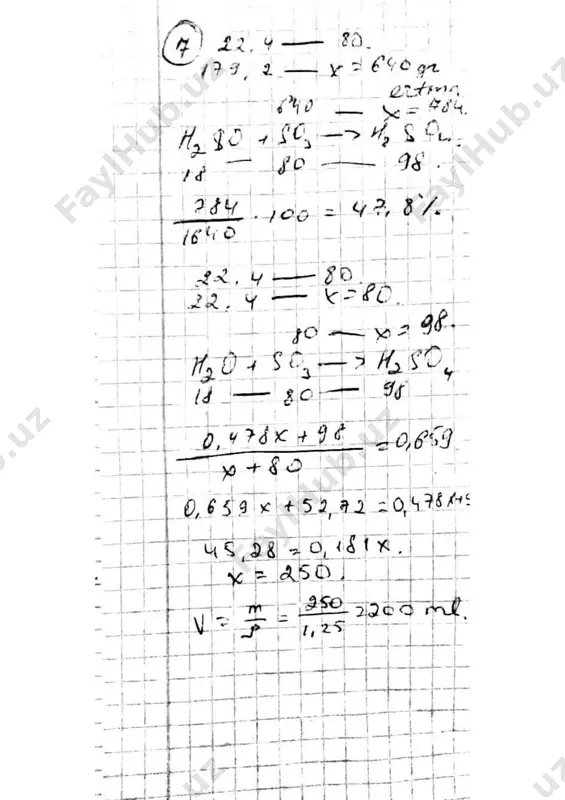 7 22.4 — 80.
179,2 — x = 640 gr
eritma
640 — x = 784.
H₂SO + SO₃ —> H₂SO₄.
18 — 80 — 98.
784/1640 · 100 = 47,8%.
22.4 — 80
22.4 — x = 80.
80 — x = 98.
H₂O + SO₃ —> H₂SO₄
18 — 80 — 98
(0,478x + 98)/(x + 80) = 0,659
0,659x + 52,72 = 0,478x+9
45,28 = 0,181x.
x = 250.
V = m/ρ = 250/1,25 = 200 ml.
FaylHub.uz
FaylHub.uz
FaylHub.uz
FaylHub.uz